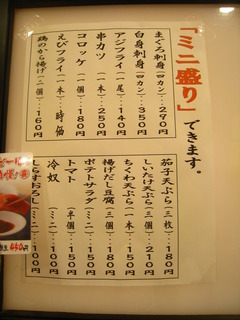 「ミニ盛り」できます。
まぐろ刺身(四カン)…290円
白身刺身(四カン)…350円
アジフライ(一尾)…140円
串カツ(一本)…250円
コロッケ(一個)…180円
えびフライ(一本)…時価
鶏のから揚げ(二個)…160円
茄子天ぷら(三枚)…180円
しいたけ天ぷら(三個)…210円
ちくわ天ぷら(一本)…150円
揚げだし豆腐(三個)…180円
ポテトサラダ(ミニ)…150円
トマト(半個)…150円
冷奴(ミニ)…100円
しらすおろし(ミニ)…100円
450円